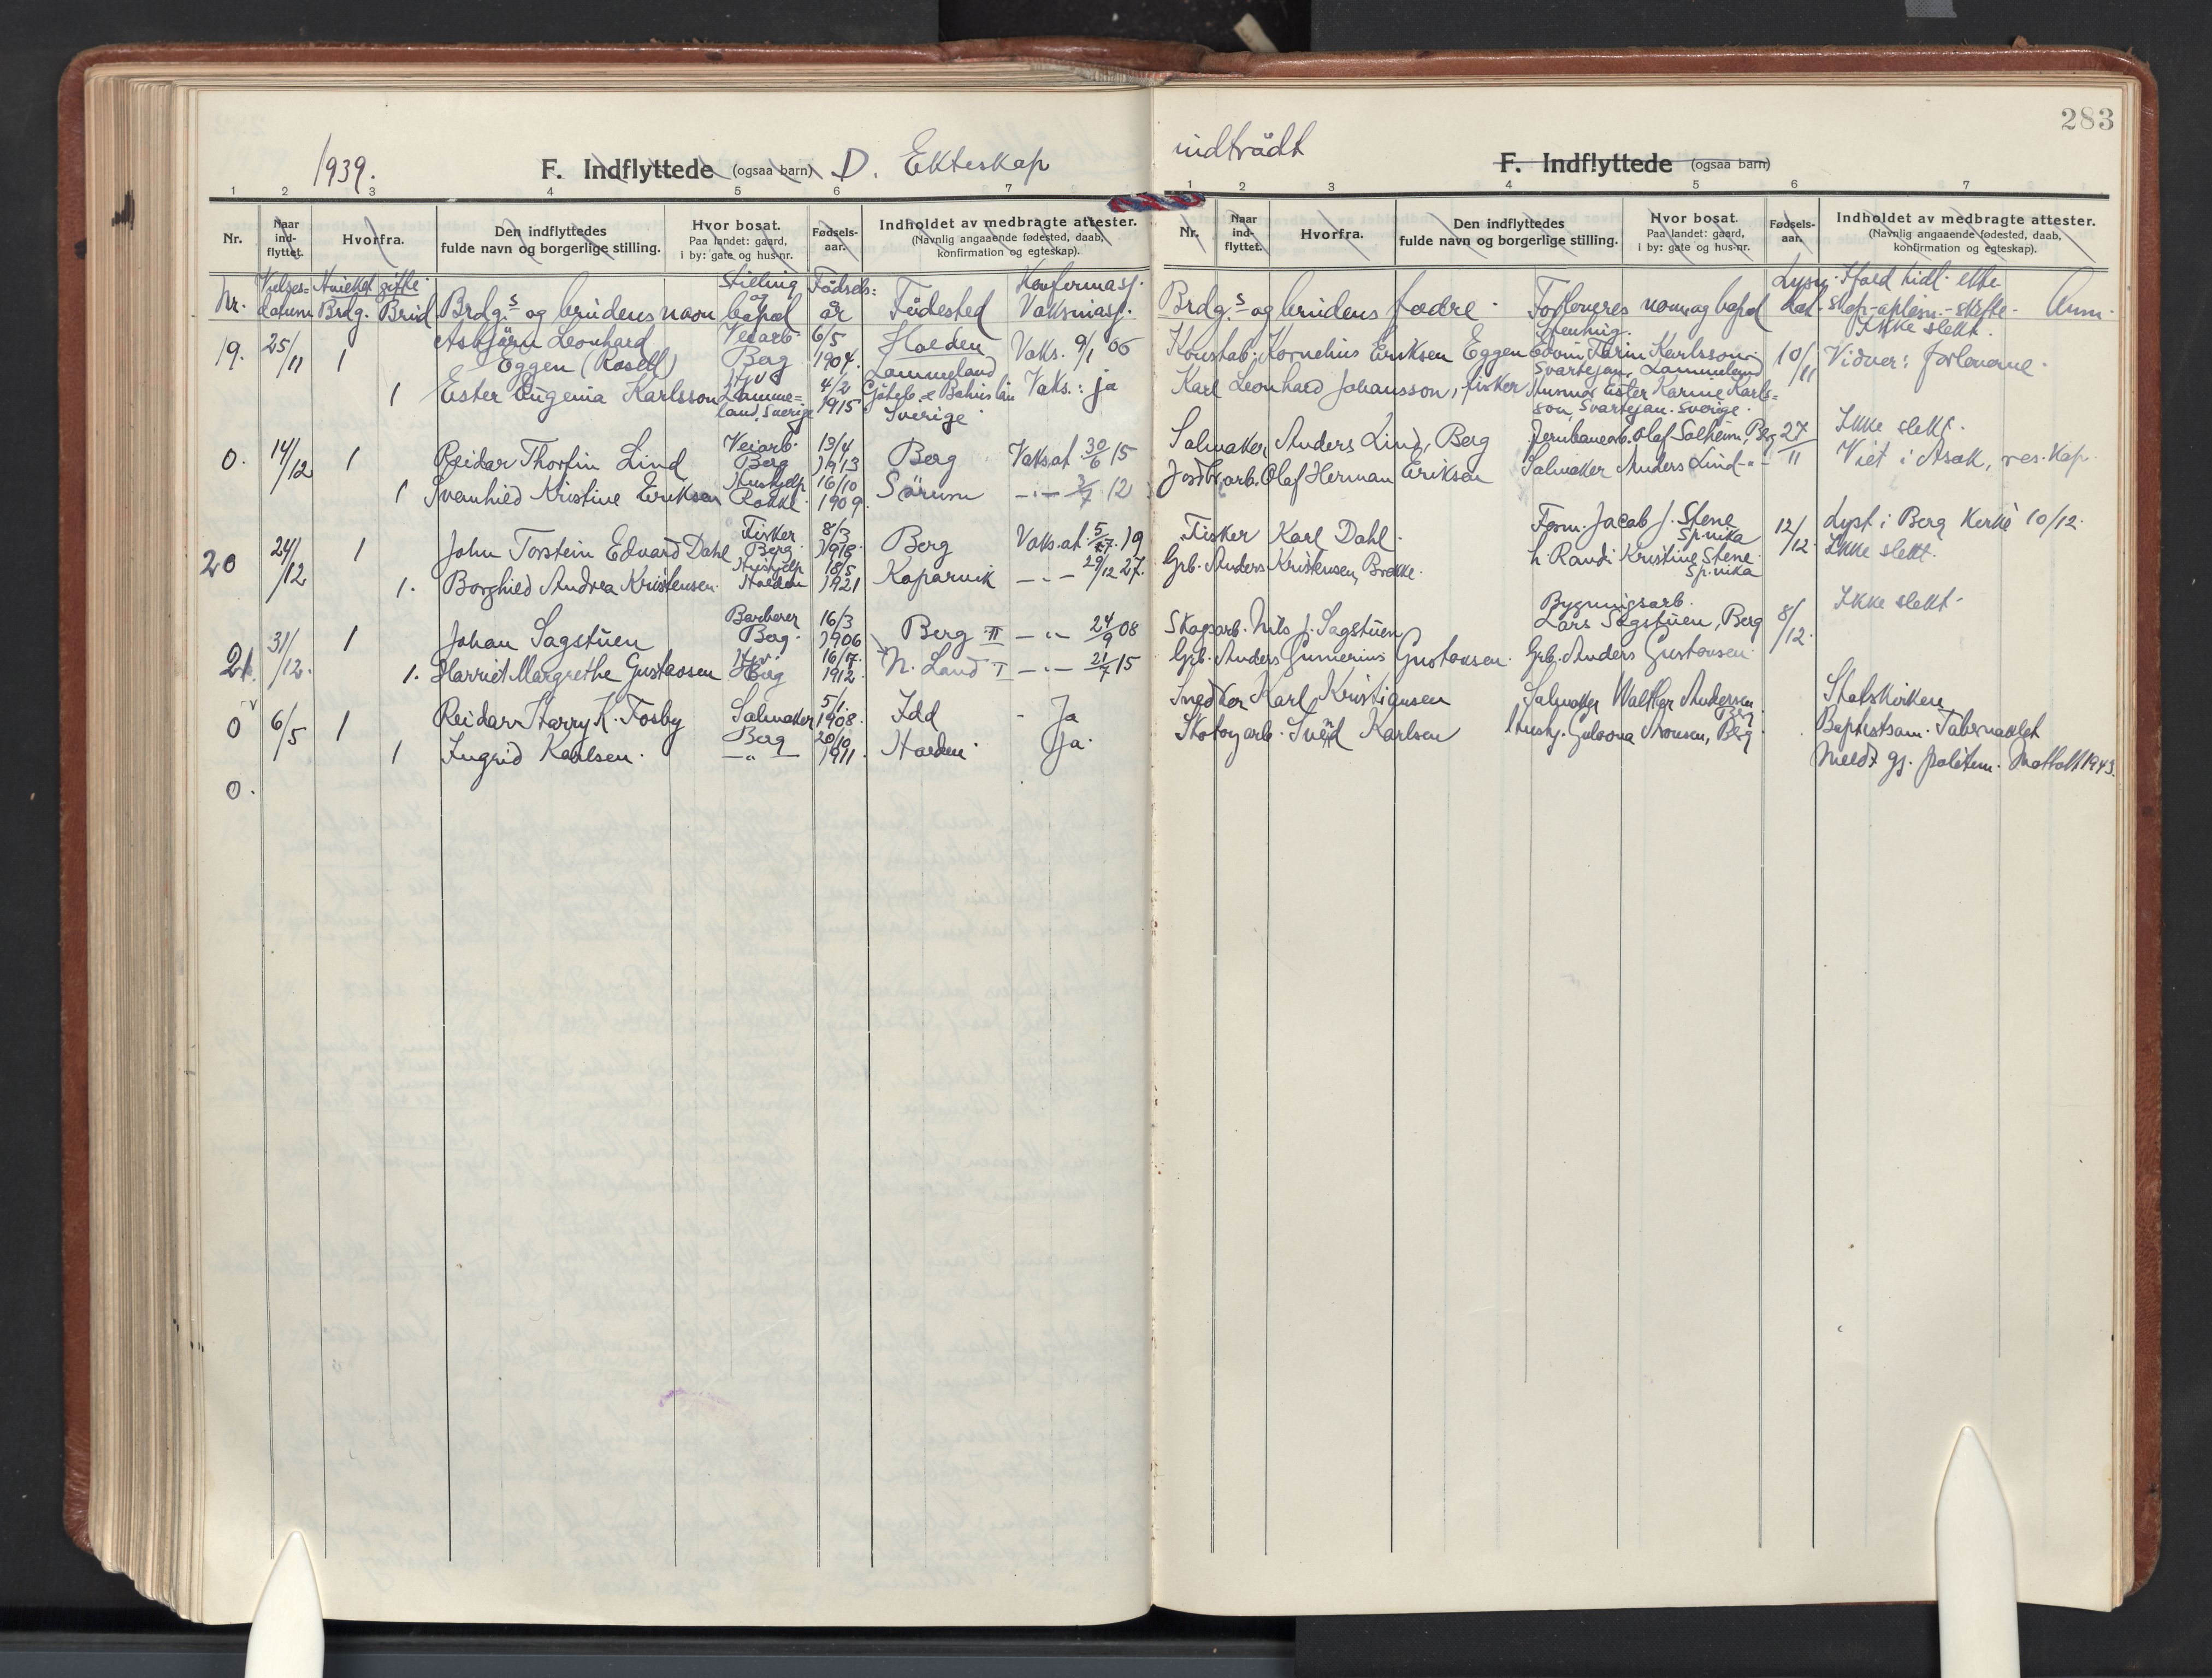 283
1939.
F. Indflyttede (ogsaa barn) D. Ekteskap
indtrådt
F. Indflyttede (ogsaa barn)
1 2 3 4 5 6 7
1 2 3 4 5 6 7
Nr. Naar ind-flyttet. Hvorfra. Den indflyttedes fulde navn og borgerlige stilling. Hvor bosat. Paa landet: gaard, i by: gate og hus-nr. Fødsels-aar. Indholdet av medbragte attester. (Navnlig angaaende fødested, daab, konfirmation og egteskap).
Nr. Naar ind-flyttet. Hvorfra. Den indflyttedes fulde navn og borgerlige stilling. Hvor bosat. Paa landet: gaard, i by: gate og hus-nr. Fødsels-aar. Indholdet av medbragte attester. (Navnlig angaaende fødested, daab, konfirmation og egteskap).
Nr. Vielses= datum Brdg. Brud Brdg.s og brudens navn Stilling og bopæl Fødsels= år Fødested Vaksinasj.
Brdg.s og brudens fædre. Forloveres navn og bopæl Anm.
19. 25/11 1 Asbjørn Leonhard Eggen Veiarb. Berg 6/5 1904. Halden Vaks. 9/1 06
Kornelius Eriksen Eggen Edvin Karlsson 10/11 Ikke slekt. Vidner: forloverne.
1 Ester Eugenia Karlsson Sverige 4/2 1915 Sverige Vaks.: ja
Karl Leonhard Johansson, fisker Ester Karine Karls= son, Svartejan. Sverige.
0. 14/12 1 Reidar Thorfin Lind Veiarb. Berg 13/4 1913 Berg Vaks.at. 30/6 15
Salmaker Anders Lind, Berg Jernbanearb. Olaf Solheim, Berg 27/11 Ikke slekt.
Viet i Asak, res. kap.
1 Svanhild Kristine Eriksen Rokke 16/10 1909. Sørum -"- 3/7 12
Olaf Herman Eriksen Salmaker Anders Lind -"-
20 24/12 1 John Torstein Edvard Dahl Fisker Berg. 8/3 1918. Berg Vaks.at. 19
Fisker Karl Dahl. Jacob J. Stene Sp.vika 12/12. Lyst i Berg kirke 10/12.
Ikke slekt.
1. Borghild Andrea Kristensen. Halden 18/5 1921 -"- 29/12 27.
Grb. Anders Kristensen, Brekke. Randi Kristine Stene Sp.vika
21. 31/12. 1 Johan Sagstuen Barberer Berg. 16/3 1906 Berg II -"- 24/9 08
Skogarb. Nils J. Sagstuen Bygningsarb. Lars Sagstuen, Berg 8/12. Ikke slekt.
1. Harriet Margrethe Gustavsen Berg 1912. N. Land I -"- 21/7 15
Grb. Anders Gunerius Gustavsen. Grb. Anders Gustavsen.
0 6/5 1 Reidar Harry K. Fosby Salmaker Berg 5/1. 1908. Idd - Ja
Snedker Karl Kristiansen Salmaker Walther Andersen Berg Statskirken
1 Ingrid Karlsen. -"- 20/10 1911. Halden. Ja.
Karlsen Berg. Baptistsam. Tabernaklet
0. Meldt gj. politim. 1943.